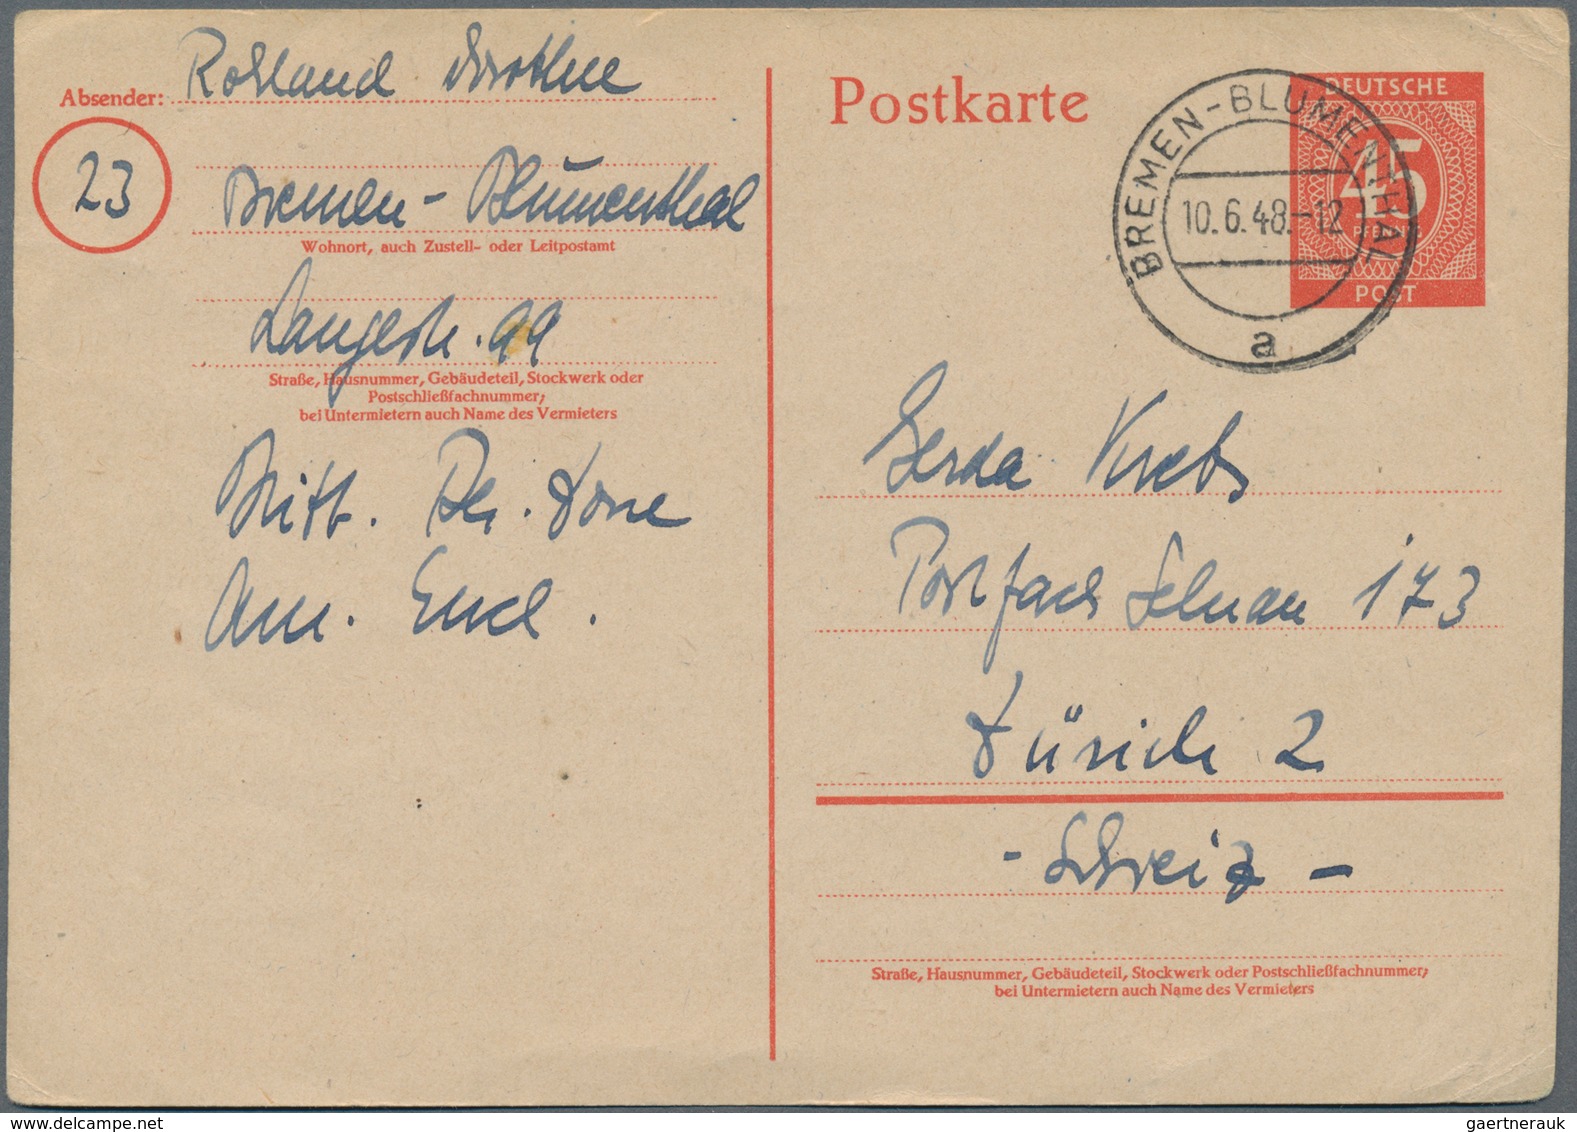 Absender: Rohland Dorothee
23
Bremen-Blumenthal
Wohnort, auch Zustell- oder Leitpostamt
Langestr. 99
Straße, Hausnummer, Gebäudeteil, Stockwerk oder
Postschließfachnummer;
bei Untermietern auch Name des Vermieters
Britt.
Am.
Postkarte
DEUTSCHE
45
PFENNIG
POST
BREMEN-BLUMENTHAL
10.6.48.-12
a
Gerda Krebs
Postfach Selnau 173
Zürich 2
- Schweiz -
Straße, Hausnummer, Gebäudeteil, Stockwerk oder Postschließfachnummer;
bei Untermietern auch Name des Vermieters
gaertnerauk